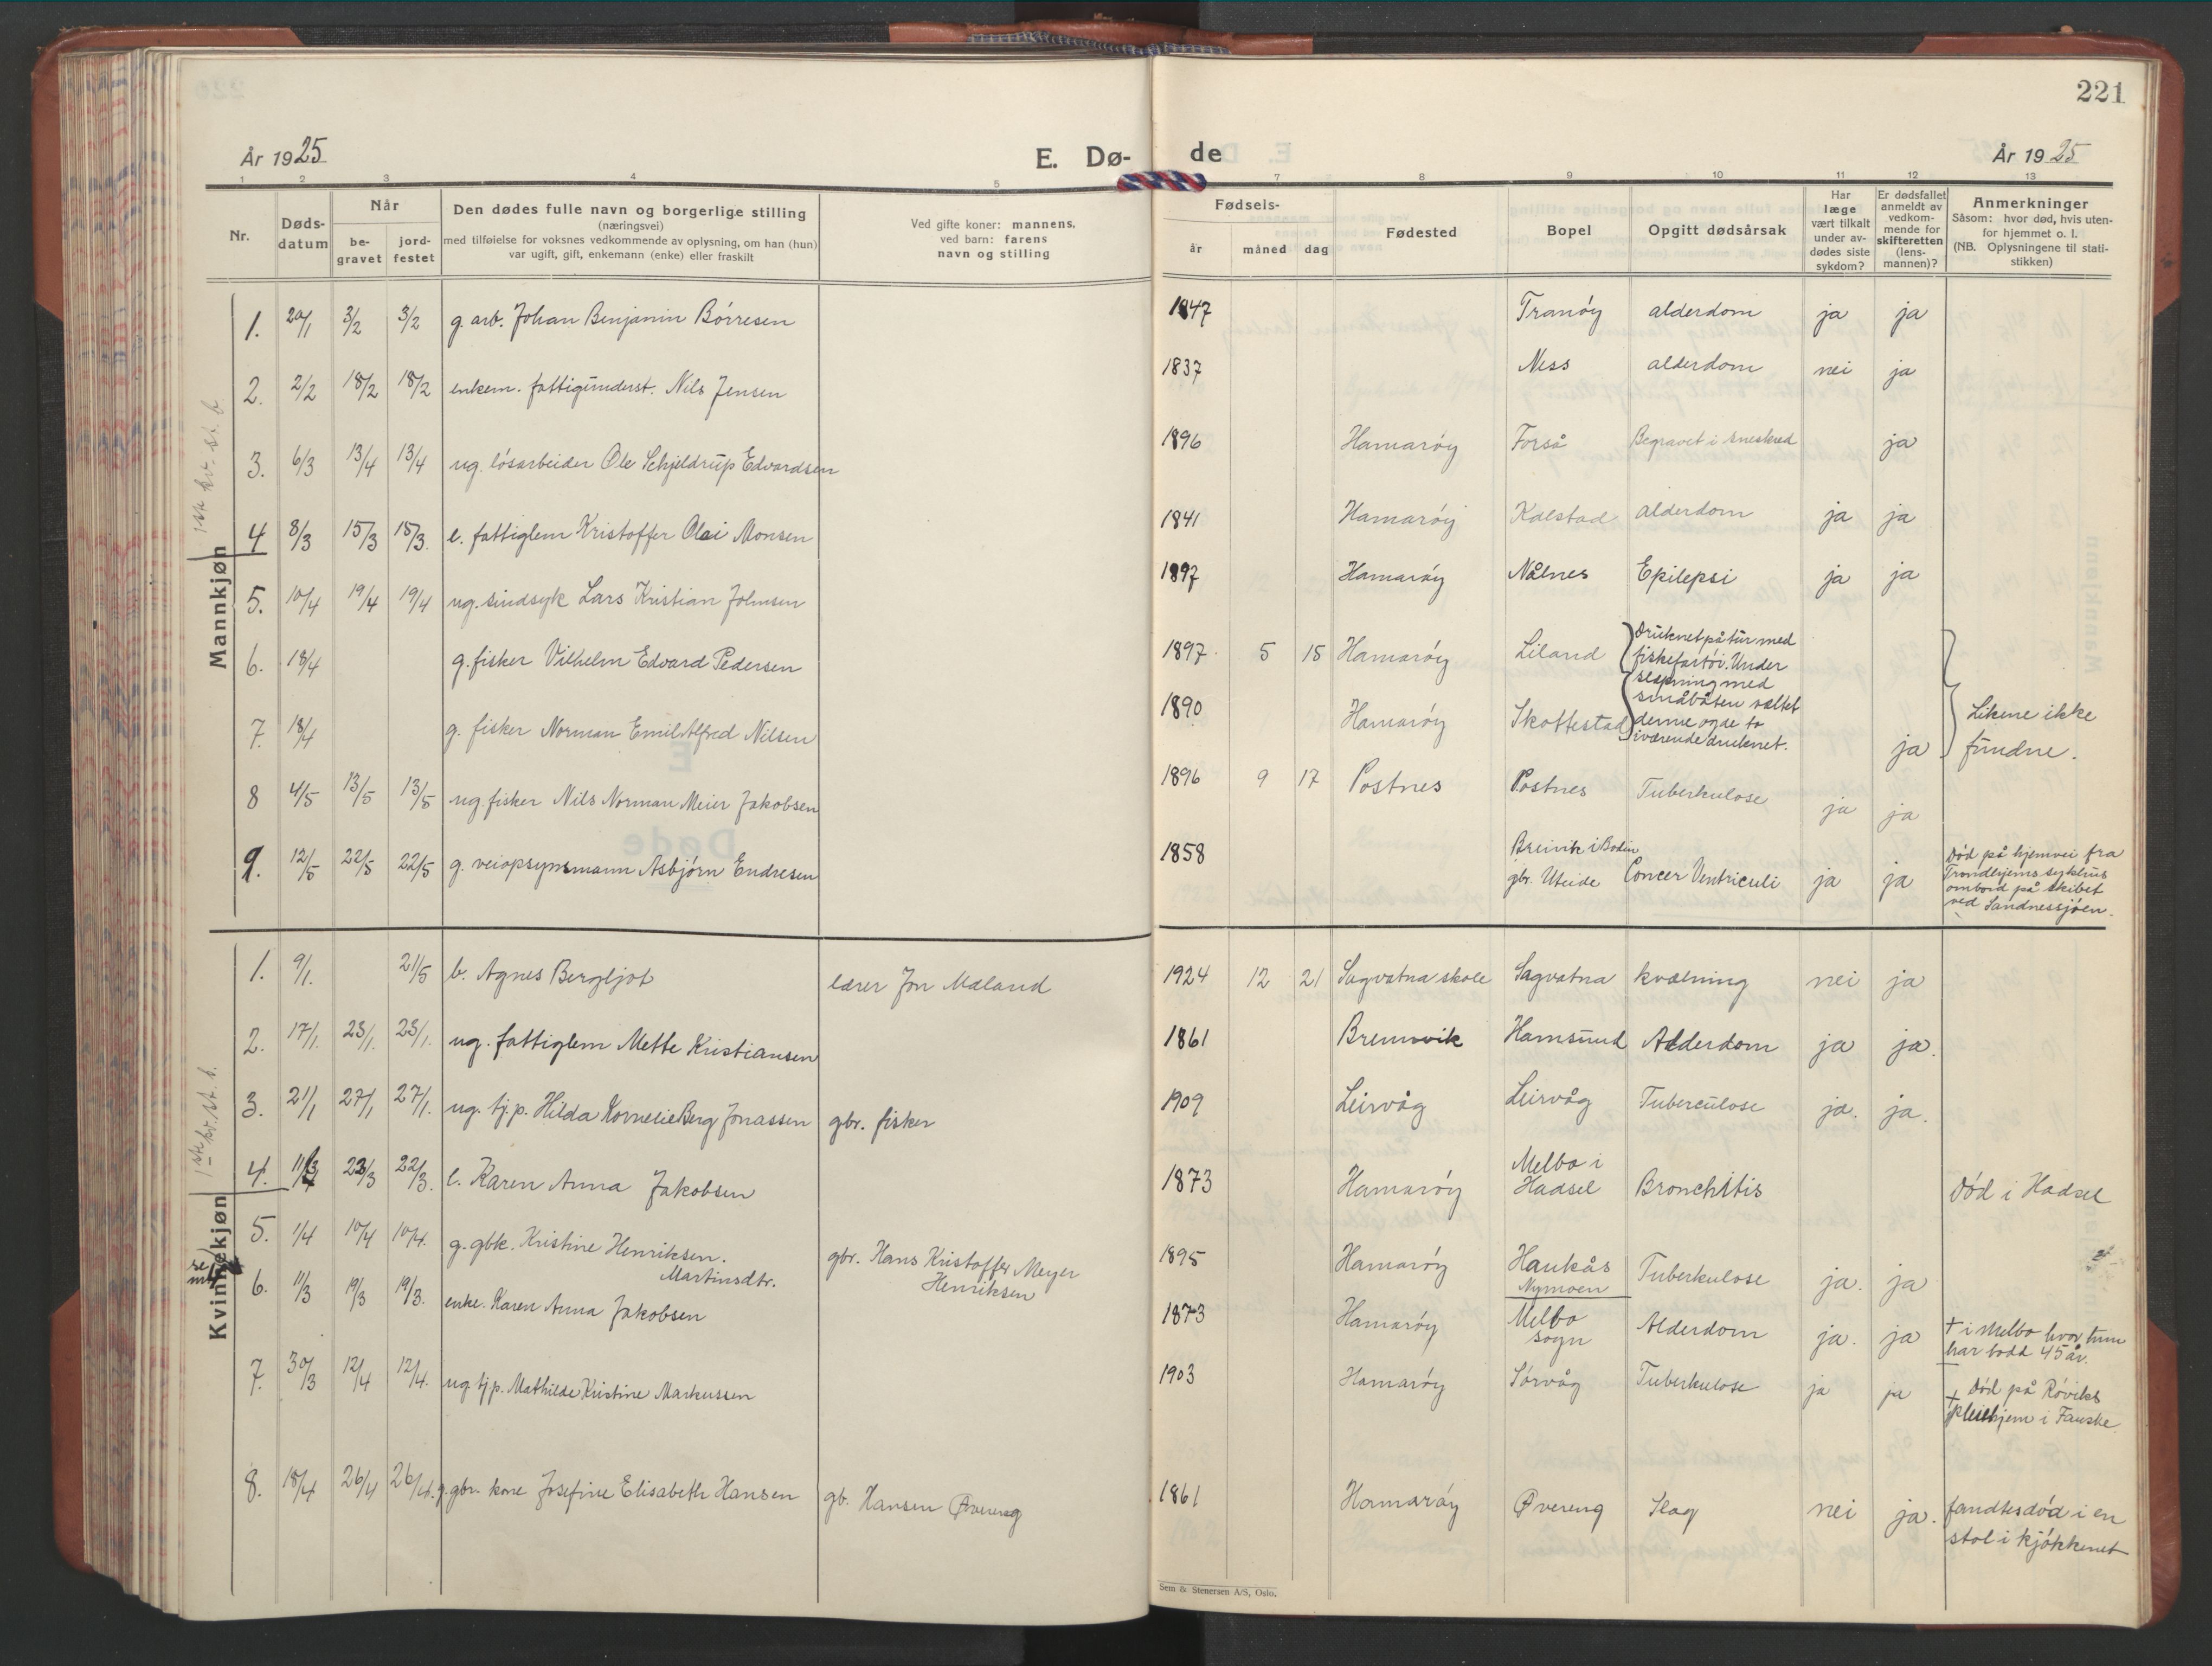 221
År 1925
E. Dø-
de
År 1925
1 2 3 4 5 7 8 9 10 11 12 13
Nr.
Døds-
datum
Når
be-
gravet
jord-
festet
Den dødes fulle navn og borgerlige stilling
(næringsvei)
med tilføielse for voksnes vedkommende av oplysning, om han (hun)
var ugift, gift, enkemann (enke) eller fraskilt
Ved gifte koner: mannens,
ved barn: farens
navn og stilling
Fødsels-
år måned dag
Fødested
Bopel
Opgitt dødsårsak
Har
læge
vært tilkalt
under av-
dødes siste
sykdom?
Er dødsfallet
anmeldt av
vedkom-
mende for
skifteretten
(lens-
mannen)?
Anmerkninger
Såsom: hvor død, hvis uten-
for hjemmet o. l.
(NB. Oplysningene til stati-
stikken)
Mannkjøn
1. 20/1 3/2 3/2 g. arb. Johan Benjamin Börresen 1847 Tranöy alderdom ja ja
2. 2/2 18/2 18/2 enkem. fattigunderst. Nils Jensen 1837 Ness alderdom nei ja
3. 6/3 13/4 13/4 ug. lösarbeider Ole Schjeldrup Edvardsen 1896 Hamaröy Forså Begravet i sneskred ja
4 8/3 15/3 15/3. e. fattiglem Kristoffer Olai Monsen 1841 Hamaröy Kalstad alderdom ja ja
5. 10/4 19/4 19/4 ug. sindsyk Lars Kristian Johnsen 1897 Hamaröy Nålnes Epilepsi ja ja
6. 18/4 g. fisker Vilhelm Edvard Pedersen 1897 5 15 Hamaröy Liland
7. 18/4 g. fisker Norman Emil Alfred Nilsen 1890 Hamaröy Skottestad ja
Druknet på tur med
fiskefartöi. Under
med
småbåten væltet
denne og de to
iværende druknet.
Likene ikke
fundne.
8 4/5 13/5 13/5 ug. fisker Nils Norman Meier Jakobsen 1896 9 17 Postnes Postnes Tuberkulose ja ja
9. 12/5 22/5 22/5 g. veiopsynsmann Asbjörn Endresen 1858 Breivik i Bodin
gbr. Uteide Concer Ventriculi ja ja
Död på hjemvei fra
Trondhjems sykhus
ombord på skibet
ved Sandnessjöen.
Kvinnekjøn
1. 9/1. 21/5 b. Agnes Bergljot lærer Jon Mæland 1924 12 21 Sagvatna skole Sagvatna kvælning nei ja
2. 17/1. 23/1. 23/1. ug. fattiglem Mette Kristiansen 1861 Bremvik Hamsund Alderdom ja ja.
3. 21/1 27/1 27/1. ug. tj.p. Hilda Kornelie Berg Jonassen gbr. fisker 1909 Leirvåg Leirvåg Tuberculose ja. ja.
4. 23/3 22/3. e. Karen Anna Jakobsen 1873 Hamaröy Melbo i
Hadsel Bronchitis Död i Hadsel
5. 1/4 10/4 10/4. g. gbk. Kristine Henriksen.
Martinsdtr. gbr. Hans Kristoffer Meyer
Henriksen 1895 Hamaröy Haukås
Nymoen Tuberkulose ja. ja
6. 11/3 19/3 19/3. enke. Karen Anna Jakobsen 1873 Hamaröy Melbo
sogn Alderdom ja. ja + i Melbo hvor hun
har bodd 45 år.
7. 30/3 12/4 12/4. ug tj.p. Mathilde Kristine Markussen 1903 Hamaröy Sörvåg Tuberkulose ja ja + Död på Röviks
pleiehjem i Fauske.
8. 18/4 26/4 26/4. g. gbr. kone Josefine Elisabeth Hansen gb. Hansen Øvereng 1861 Hamaröy Øvereng Slag nei ja. fandtes död i en
stol i kjökkenet
Sem & Stenersen A/S, Oslo.